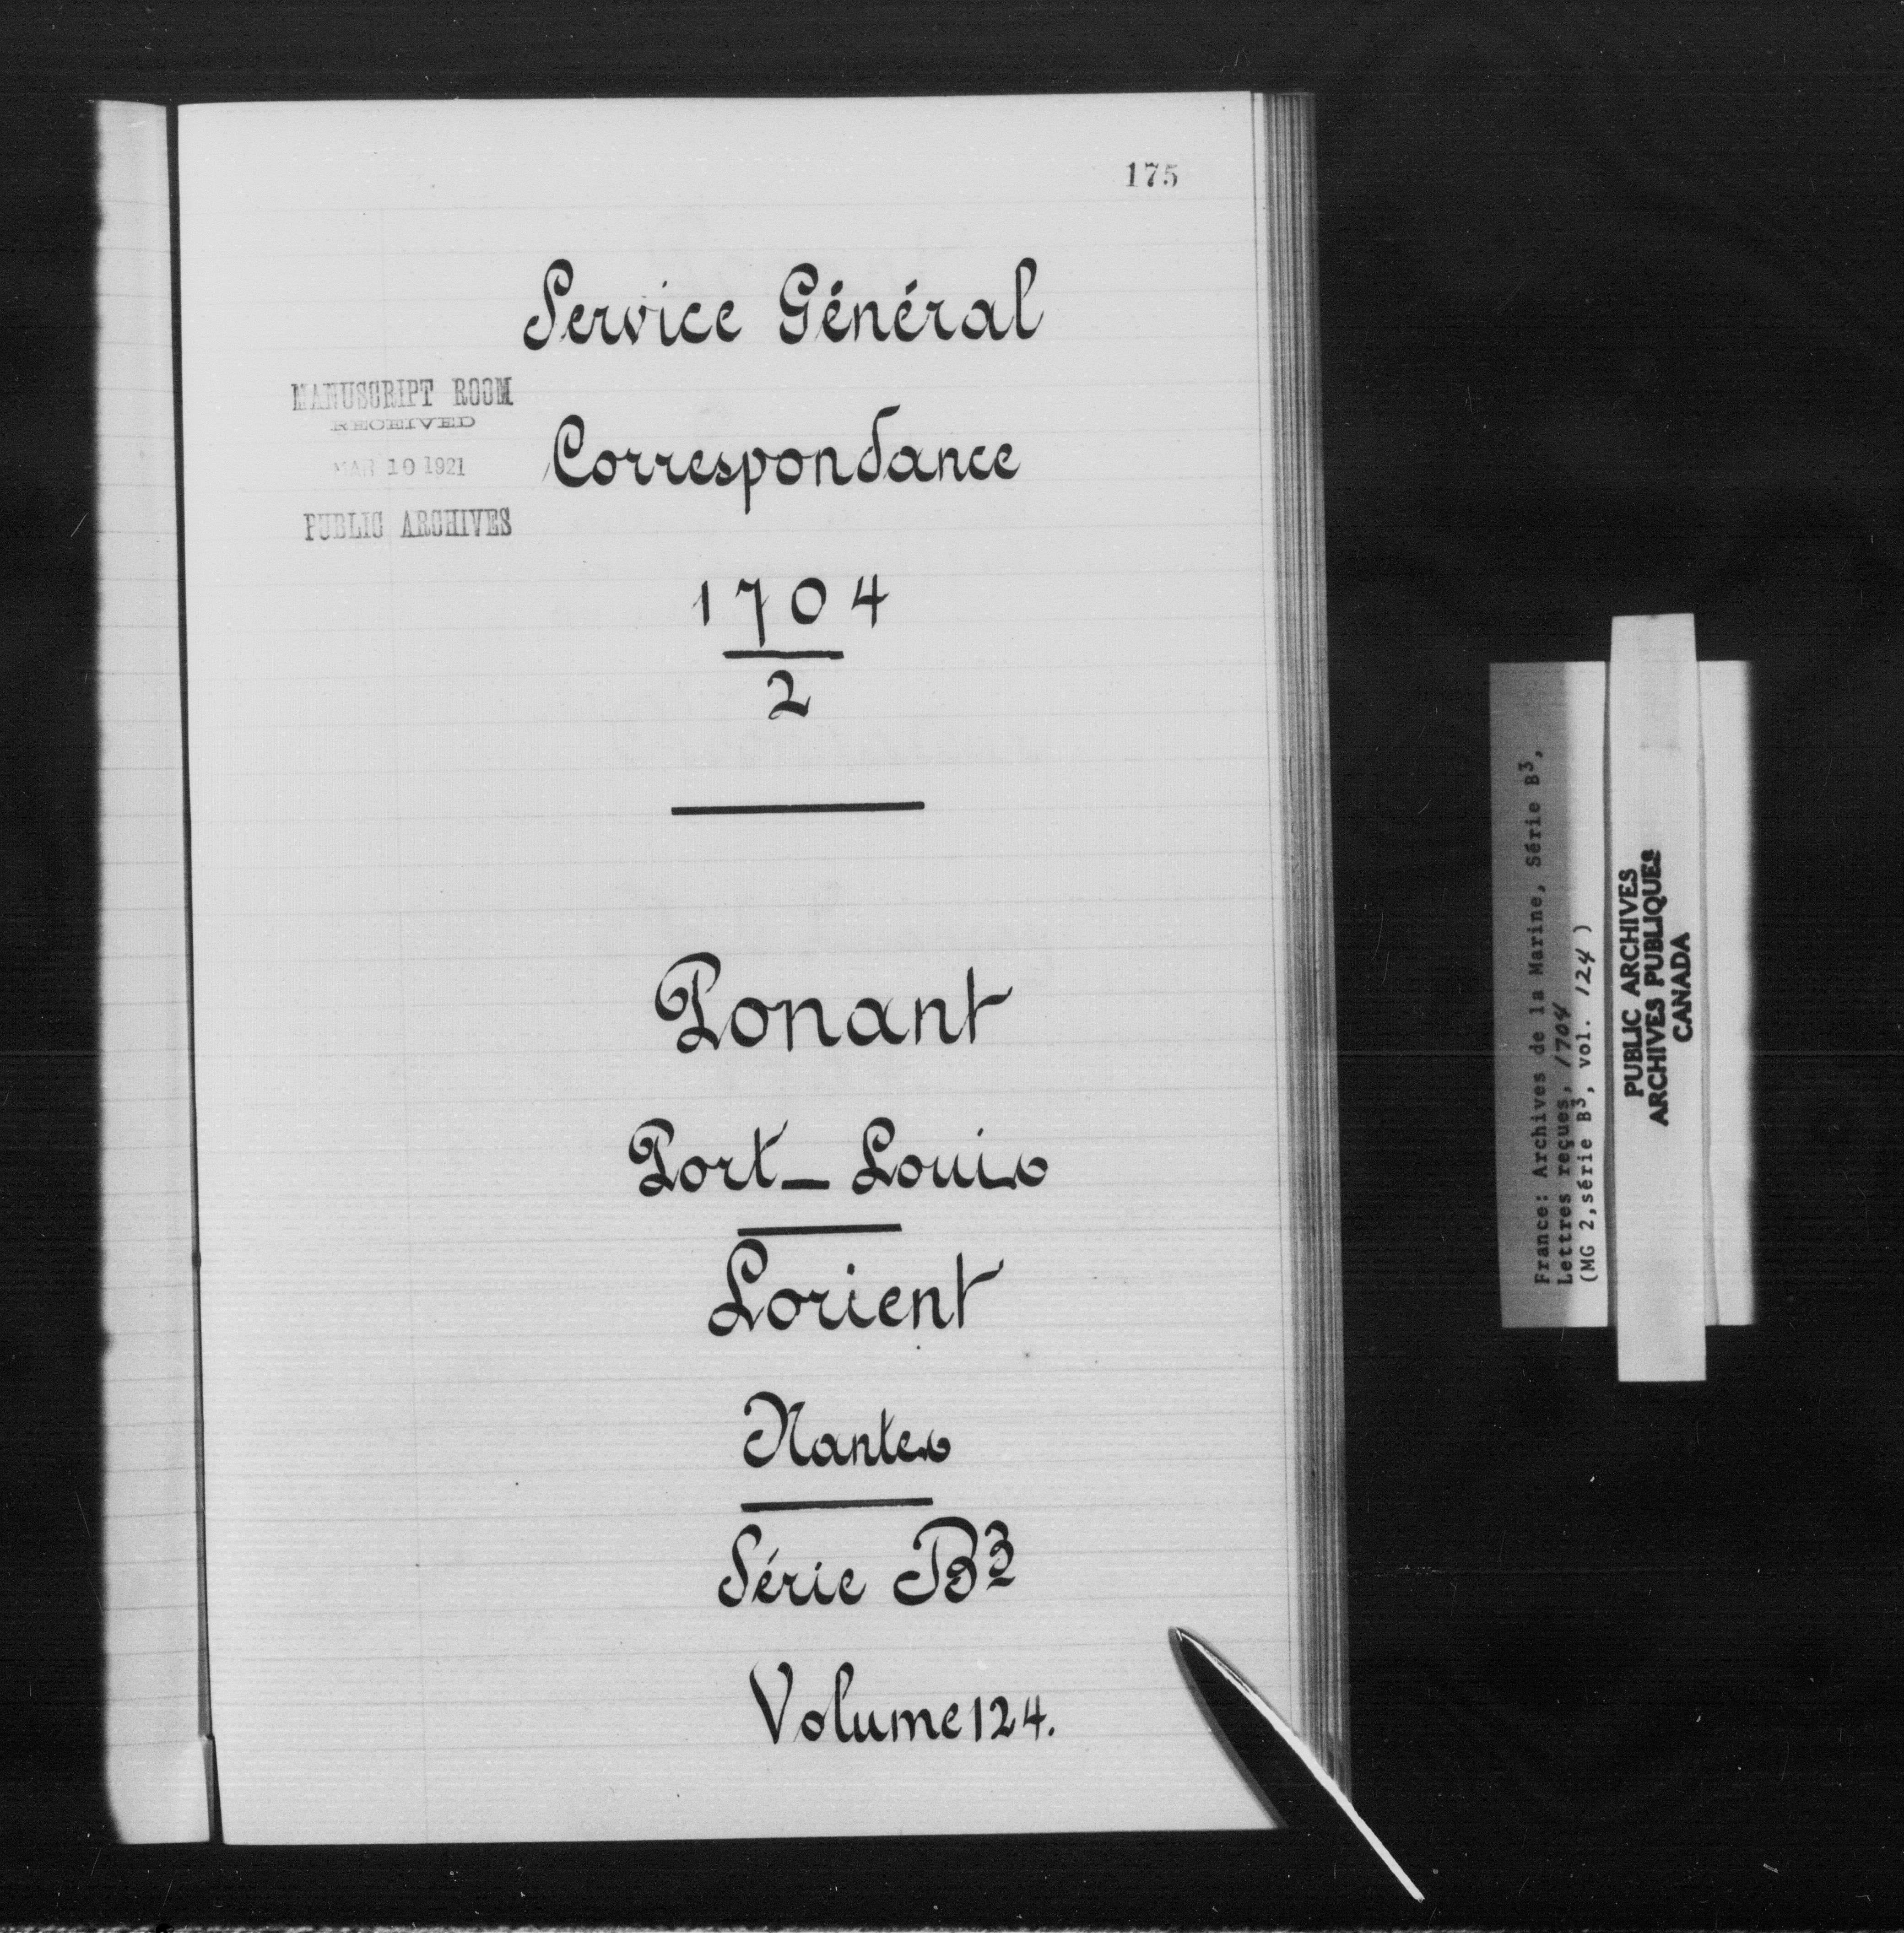 175
Service Général
MANUSCRIPT ROOM
RECEIVED
MAR 10 1921
PUBLIC ARCHIVES
Correspondance
1704
2
Ponant
Port_Louis
Lorient
Nantes
Série B3
Volume 124.
France: Archives de la Marine, Série B3,
Lettres reçues, 1704
(MG 2,série B3, vol. 124)
PUBLIC ARCHIVES
ARCHIVES PUBLIQUES
CANADA